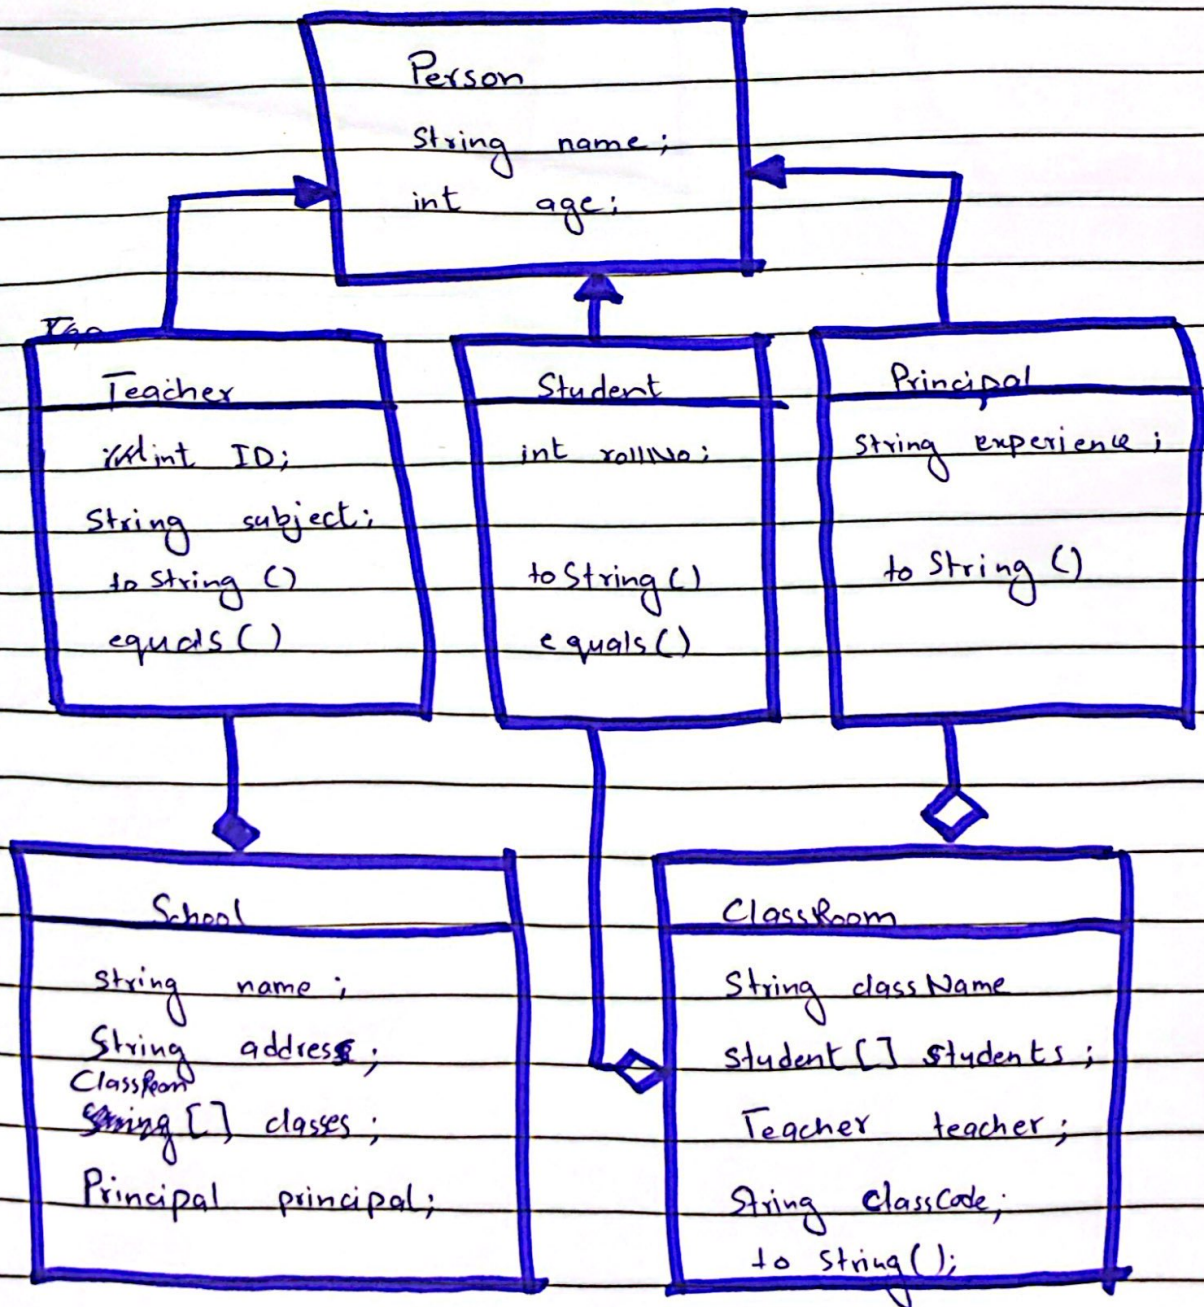 Person
String name;
int age;
Teacher
int ID;
String subject;
to String ()
equals ()
Student
int rollNo;
toString()
equals()
Principal
String experience;
to String ()
School
String name;
String address;
ClassRoom
[] classes;
Principal principal;
ClassRoom
String className
Student [] students;
Teacher teacher;
String classCode;
to String();